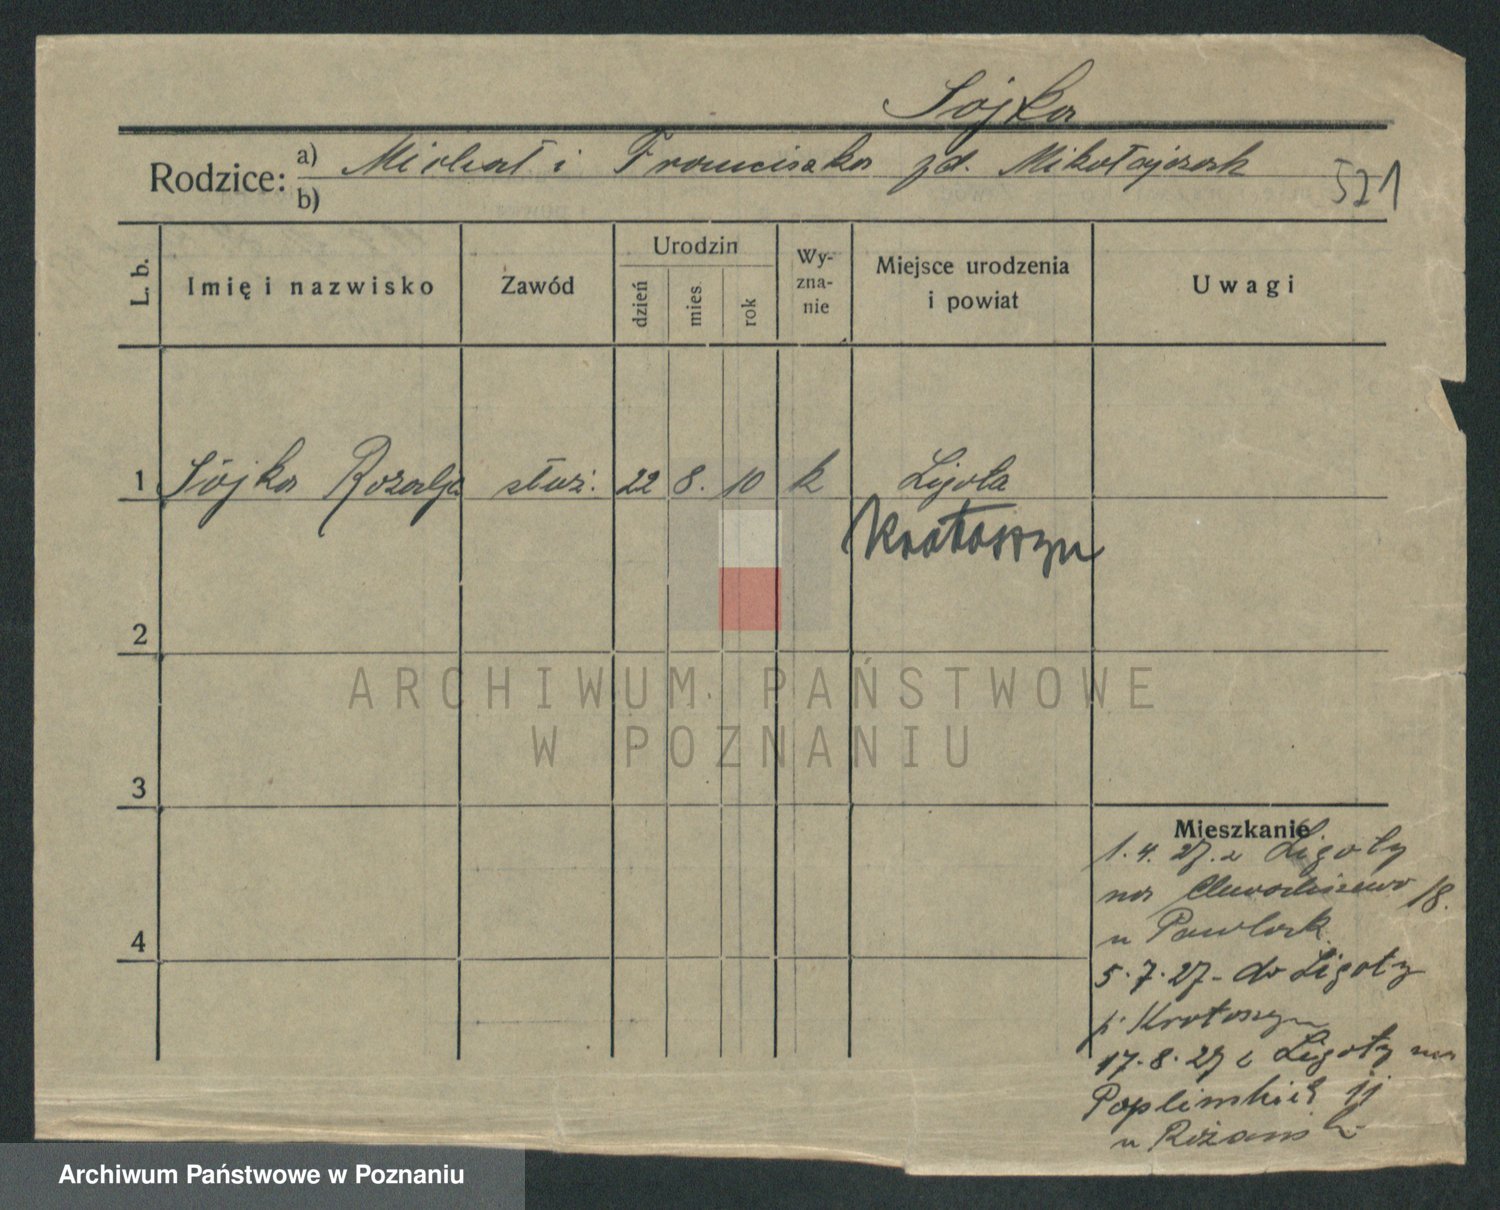 Sójka
Rodzice: a) Michał i Franciszka zd. Mikołajczak
b)
521
L. b.
Imię i nazwisko
Zawód
Urodzin
dzień
mies.
rok
Wy-
zna-
nie
Miejsce urodzenia
i powiat
Uwagi
1 Sójka Rozalja służ. 22 8. 10 k Ligota
Krotoszyn
2
ARCHIWUM PAŃSTWOWE
W POZNANIU
3
Mieszkanie
1. 4. 27. z Ligoty
na 18.
u Pawlak
4
5. 7. 27 - do Ligoty
p. Krotoszyn
17. 8. 27 z Ligoty na
Poplińskich 11
u
Archiwum Państwowe w Poznaniu